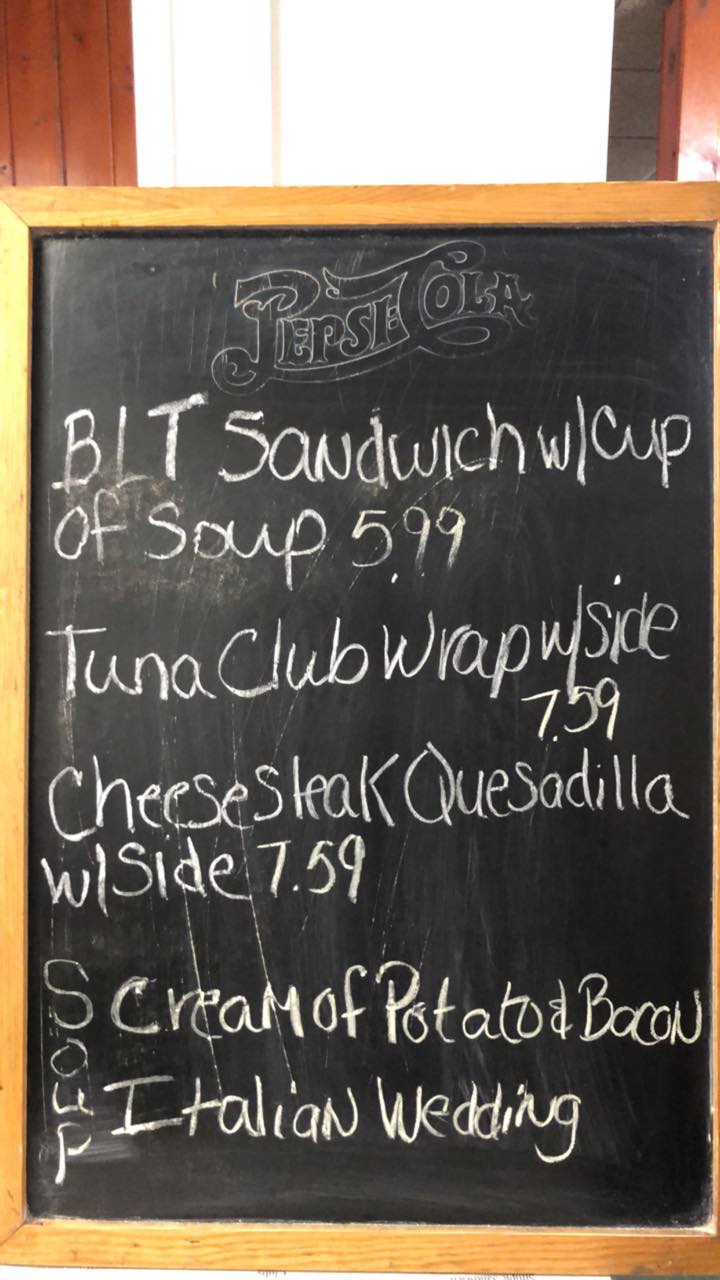 PEPSI COLA
BLT Sandwich w/cup
of Soup 5.99
Tuna Club Wrap w/side
7.59
Cheesesteak Quesadilla
w/side 7.59
SOUP
Cream of Potato & Bacon
Italian Wedding